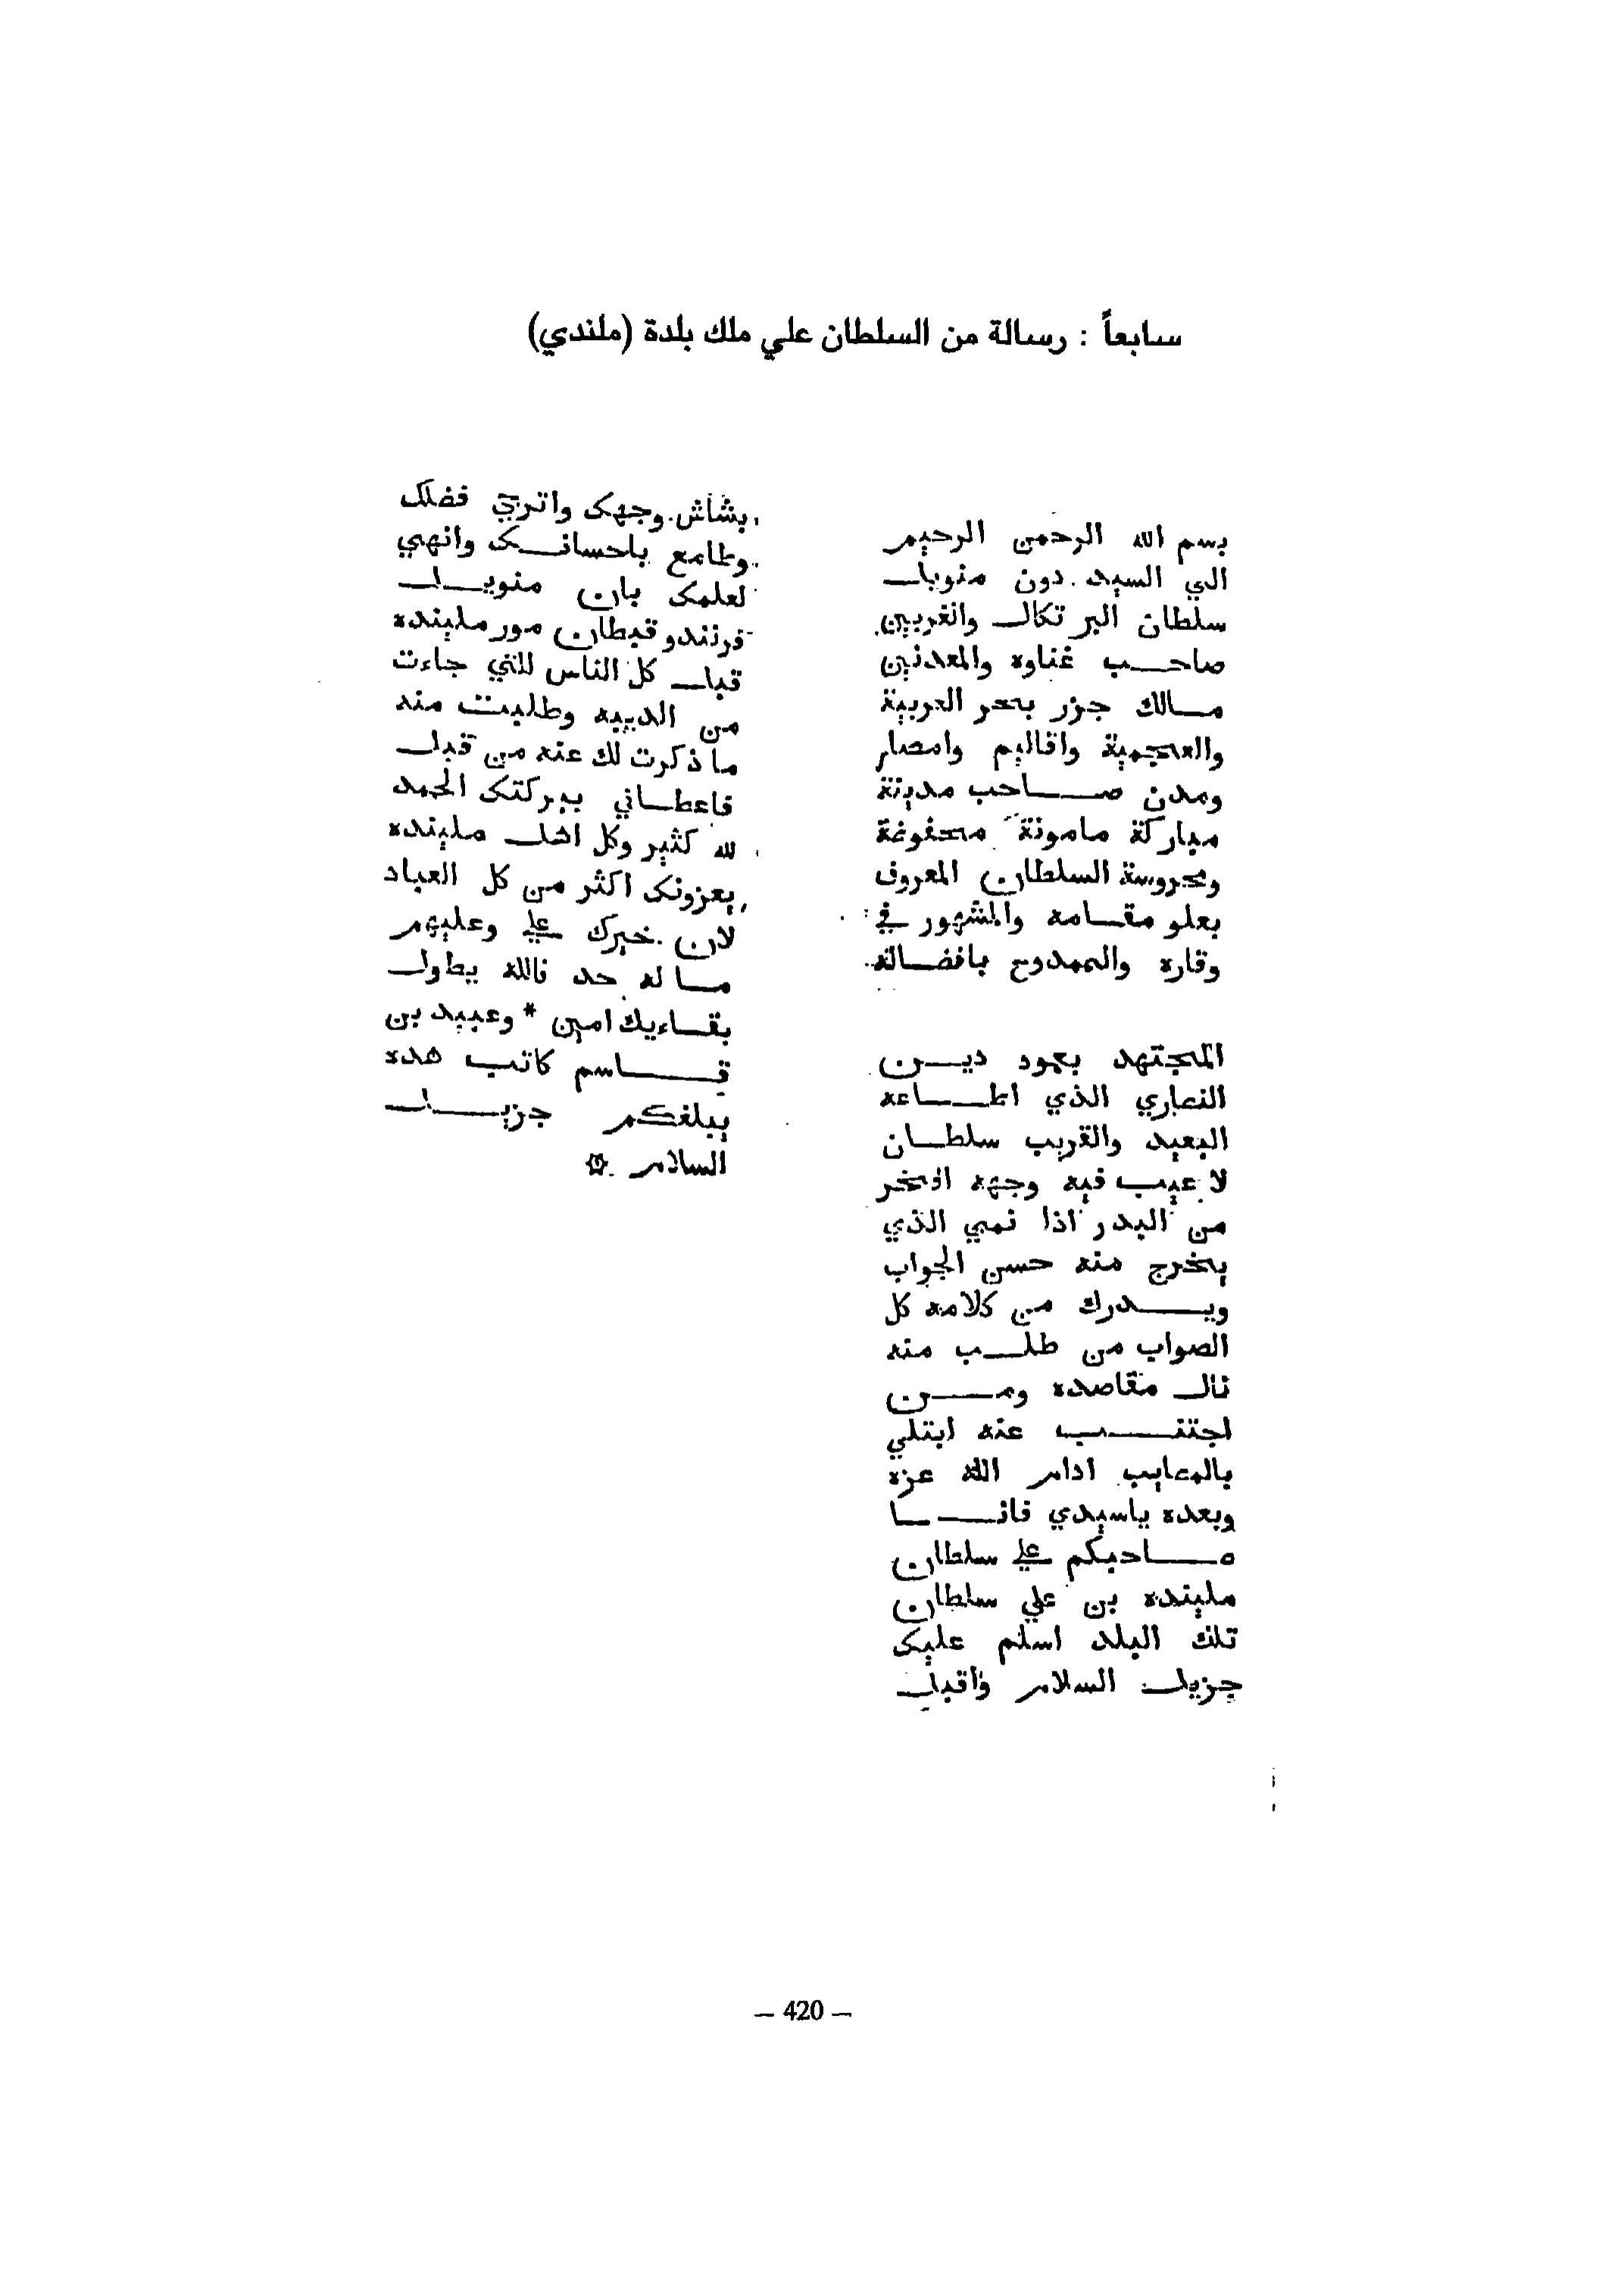 سابعاً : رسالة من السلطان علي ملك بلدة (ملندي)
بسم الله الرحمن الرحيم
الي السيد دون منويل
سلطان البر تكال والغربين
صاحب غناوه والمعدنين
مالك جزر بحر العربية
والعجمية واقاليم وامصار
ومدن صاحب مدينة
مباركة مامونة محفوغة
ومحروسة السلطان المعروف
بعلو مقامه والمشهور في
وقاره والممدوح بافضاله
المجتهد بعمود دين
النصاري الذي اطاعه
البعيد والقريب سلطان
لا عيب فيه وجهه افخر
من البدر اذا نمي الذي
يخرج منه حسن الجواب
ويدرك من كلامه كل
الصواب من طلب منه
نال مقاصده ومن
اجتنب عنه ابتلي
بالمعايب ادام الله عزه
وبعده ياسيدي فانا
صاحبكم علي سلطان
ملينده بن علي سلطان
تلك البلد اسلم عليك
جزيل السلام واقبل
بشاش وجهك واترجي فضلك
وطامع باحسانك وانهي
لعلمك بان منويل
فرنندو قبطان مور مليندة
قبل كل الناس للتي جاءت
من الديبه وطلبت منه
ما ذكرت لك عنه من قبل
فاعطاني ببركتك الحمد
لله كثير وكل اشل مليندة
يعزونك اكثر من كل العباد
لان خيرك علي وعليهم
ما له حد فالله يطول
بقاءيك امين * وعبيد بن
قاسم كاتب هده
يبلغكم جزيل
السلام ۞
— 420 —